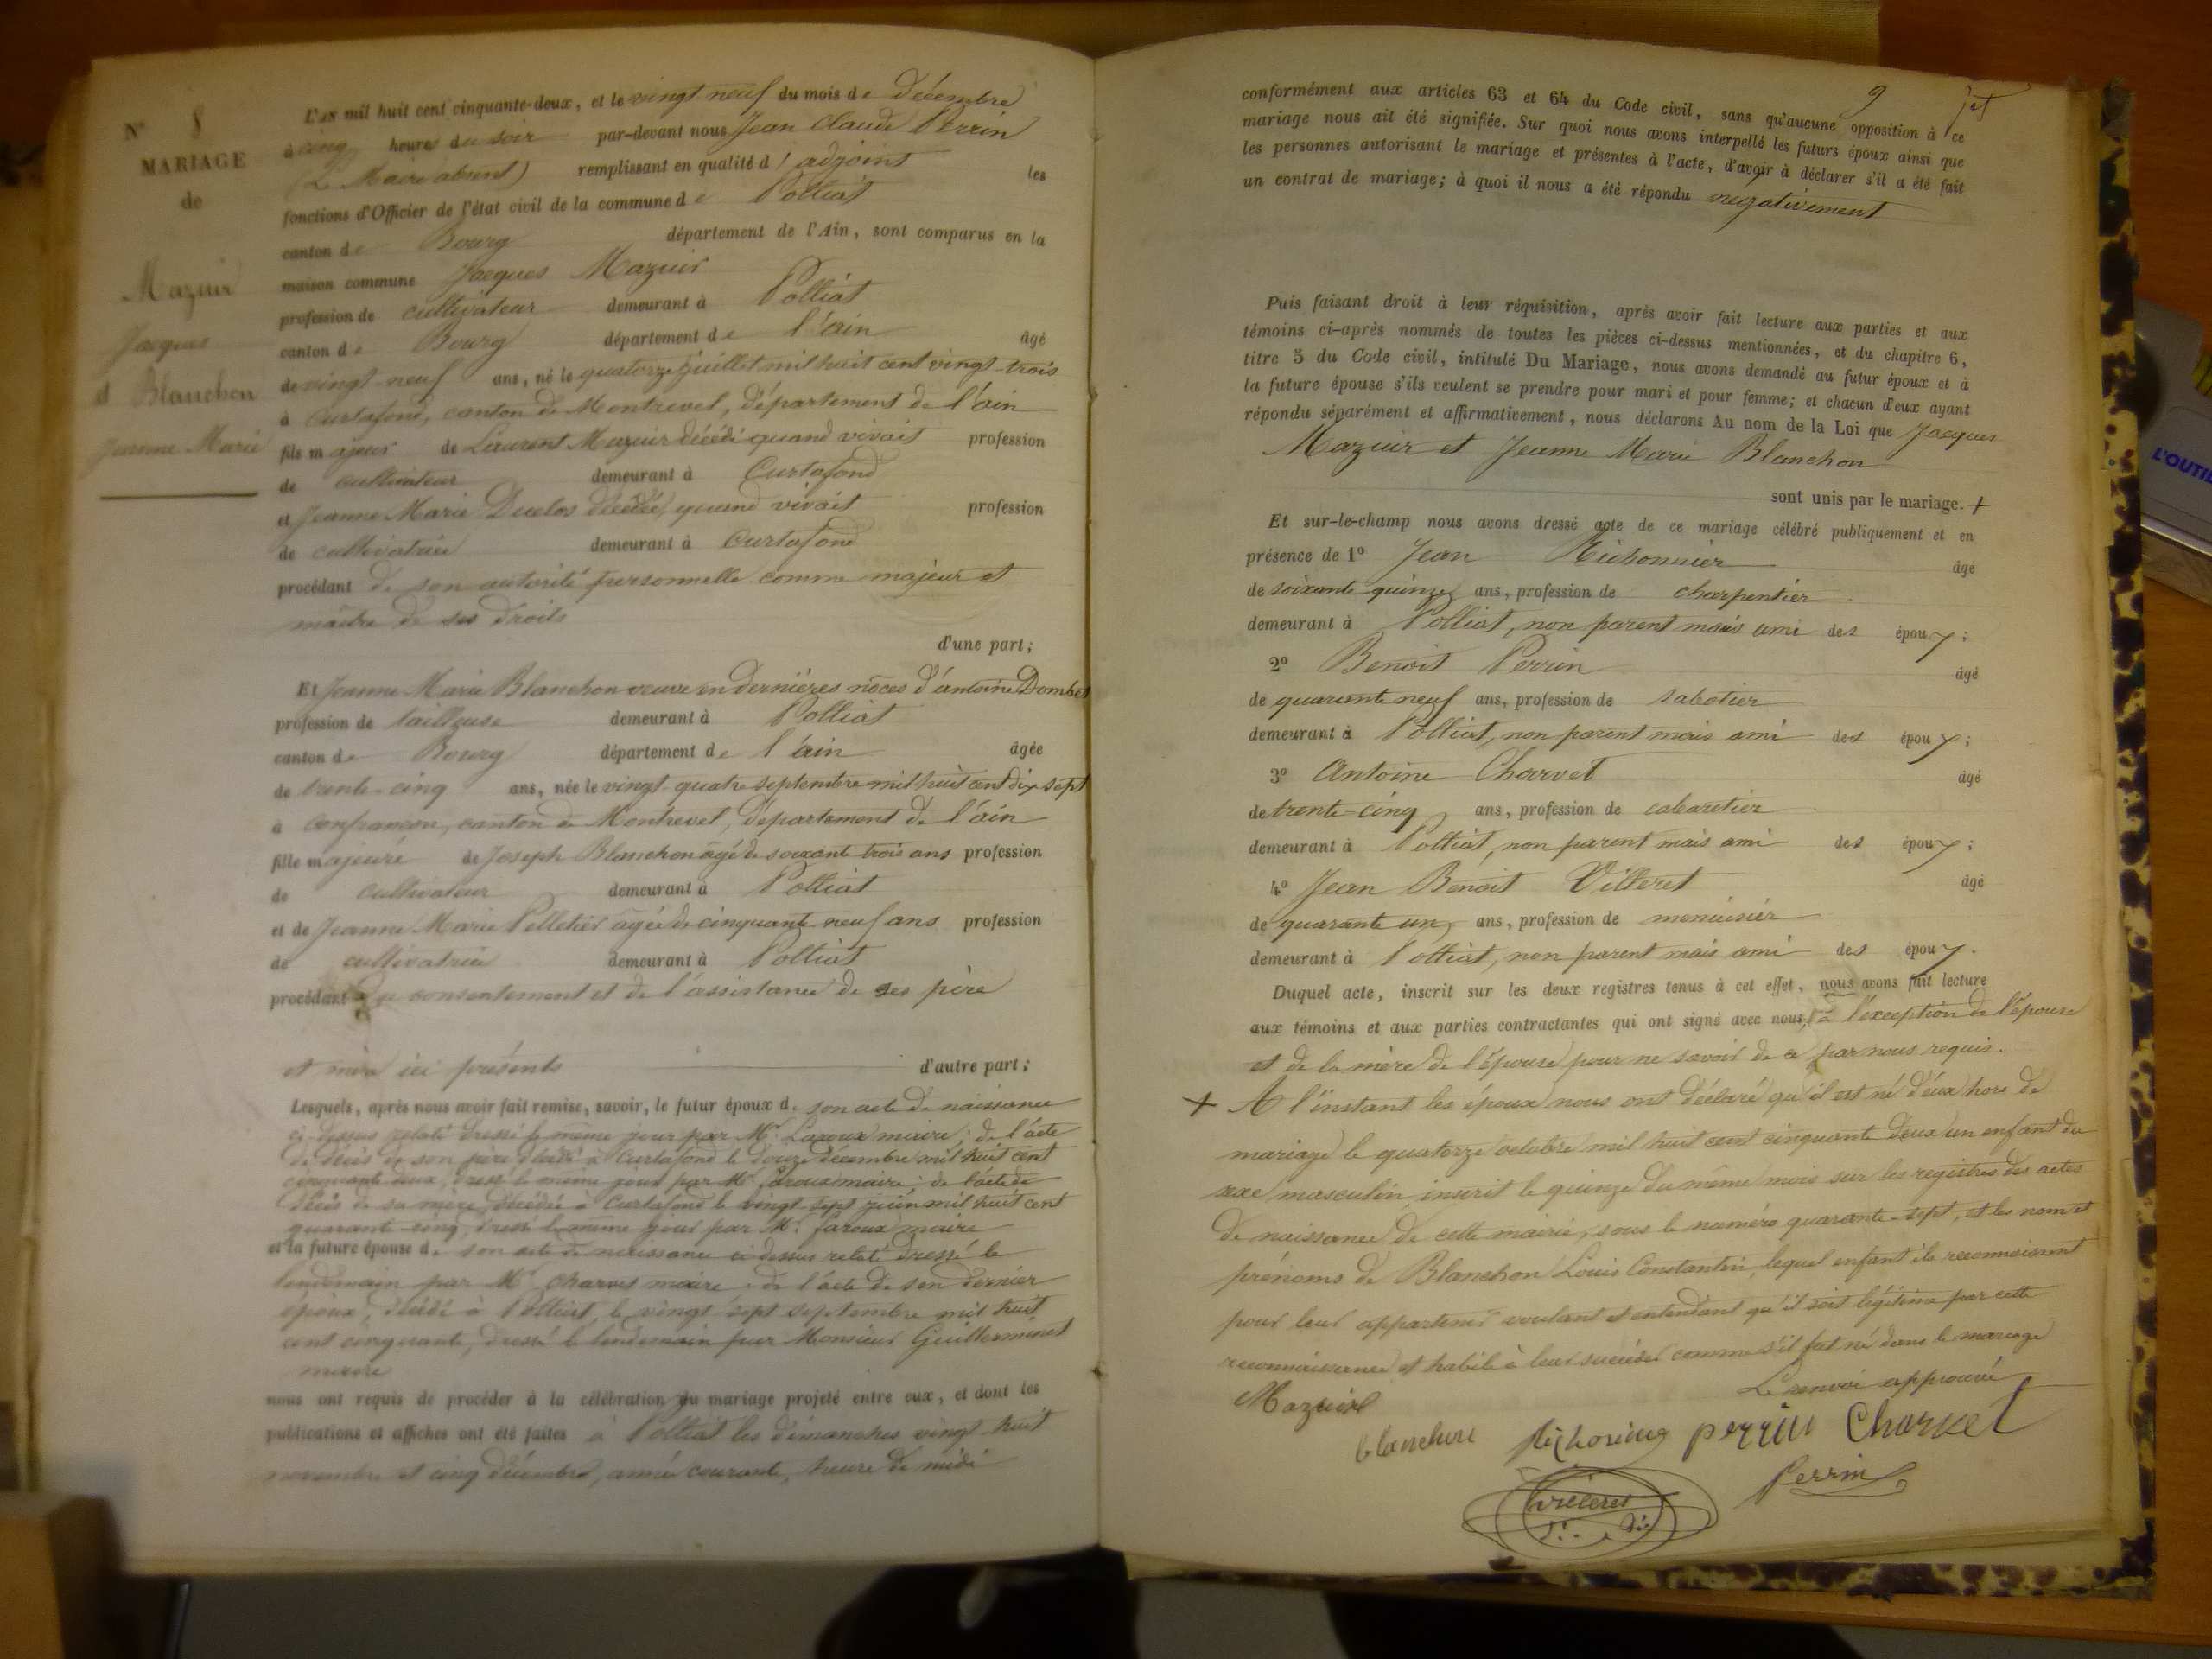 N° 8
MARIAGE
de
Mazuir
Jacques
et Blanchon
Jeanne Marie
L'AN mil huit cent cinquante-deux, et le vingt neuf du mois de décembre
à cinq heures du soir par-devant nous Jean Claude Perrin
(Le Maire absent) remplissant en qualité d'adjoint les
fonctions d'Officier de l'état civil de la commune de Polliat
canton de Bourg département de l'Ain, sont comparus en la
maison commune Jacques Mazuir
profession de cultivateur demeurant à Polliat
canton de Bourg département de l'ain âgé
de vingt-neuf ans, né le quatorze juillet mil huit cent vingt-trois
à Curtafond, canton de Montrevel, département de l'ain
fils majeur de Laurent Mazuir décédé quand vivait profession
de cultivateur demeurant à Curtafond
et Jeanne Marie Duclos décédée, quand vivait profession
de cultivatrice demeurant à Curtafond
procédant de son autorité personnelle comme majeur et
maître de ses droits
d'une part;
Et Jeanne Marie Blanchon veuve en dernières nôces d'antoine Dombet
profession de tailleuse demeurant à Polliat
canton de Bourg département de l'ain âgée
de trente-cinq ans, née le vingt-quatre septembre mil huit cent dix sept
à confrancon, canton de Montrevel, département de l'ain
fille majeure de Joseph Blanchon âgé de soixante trois ans profession
de cultivateur demeurant à Polliat
et de Jeanne Marie Pelletier âgée de cinquante neuf ans profession
de cultivatrice demeurant à Polliat
procédant du consentement et de l'assistance de ses père
et mère ici présents d'autre part;
Lesquels, après nous avoir fait remise, savoir, le futur époux de son acte de naissance
ci-dessus relaté dressé le même jour par Mr. Laroux maire; de l'acte
de décès de son père décédé à Curtafond le douze décembre mil huit cent
cinquante deux, dressé le même jour par Mr Laroux maire; de l'acte de
décès de sa mère, décédée à Curtafond le vingt-sept juin mil huit cent
quarante-cinq, dressé le même jour par Mr. Laroux maire
et la future épouse de son acte de naissance ci dessus relaté dressé le
lendemain par Mr Charves maire; de l'acte de son dernier
époux, décédé à Polliat, le vingt-sept septembre mil huit
cent cinquante, dressé le lendemain par Monsieur Guillerminet
maire
nous ont requis de procéder à la célébration du mariage projeté entre eux, et dont les
publications et affiches ont été faites à Polliat les dimanches vingt-huit
novembre et cinq décembre, année courante, heure de midi
9
conformément aux articles 63 et 64 du Code civil, sans qu'aucune opposition à ce
mariage nous ait été signifiée. Sur quoi nous avons interpellé les futurs époux ainsi que
les personnes autorisant le mariage et présentes à l'acte, d'avoir à déclarer s'il a été fait
un contrat de mariage; à quoi il nous a été répondu negativement
Puis faisant droit à leur réquisition, après avoir fait lecture aux parties et aux
témoins ci-après nommés de toutes les pièces ci-dessus mentionnées, et du chapitre 6,
titre 5 du Code civil, intitulé Du Mariage, nous avons demandé au futur époux et à
la future épouse s'ils veulent se prendre pour mari et pour femme; et chacun d'eux ayant
répondu séparément et affirmativement, nous déclarons Au nom de la Loi que Jacques
Mazuir et Jeanne Marie Blanchon
sont unis par le mariage. +
Et sur-le-champ nous avons dressé acte de ce mariage célébré publiquement et en
présence de 1° Jean Richonnier âgé
de soixante quinze ans, profession de charpentier
demeurant à Polliat, non parent mais ami des époux;
2° Benoit Perrin âgé
de quarante neuf ans, profession de sabotier
demeurant à Polliat, non parent mais ami des époux;
3° Antoine Charvet âgé
de trente-cinq ans, profession de cabaretier
demeurant à Polliat, non parent mais ami des époux;
4° Jean Benoit Villeret âgé
de quarante un ans, profession de menuisier
demeurant à Polliat, non parent mais ami des époux.
Duquel acte, inscrit sur les deux registres tenus à cet effet, nous avons fait lecture
aux témoins et aux parties contractantes qui ont signé avec nous, à l'exception de l'épouse
et de la mère de l'épouse pour ne savoir de ce par nous requis.
+ A l'instant les époux nous ont déclaré qu'il est né d'eux hors de
mariage le quatorze octobre mil huit cent cinquante deux un enfant du
sexe masculin, inscrit le quinze du même mois sur les registres des actes
de naissance de cette mairie, sous le numéro quarante-sept, et les nom et
prénoms de Blanchon Louis Constantin, lequel enfant ils reconnaissent
pour leur appartenir voulant et entendant qu'il soit légitimé par cette
reconnaissance et habile à leur succéder comme s'il fut né dans le mariage
Le renvoi approuvé
Mazuir
blanchon Richonier perrin Charvet
Perrin
Villeret
L'OUTIL